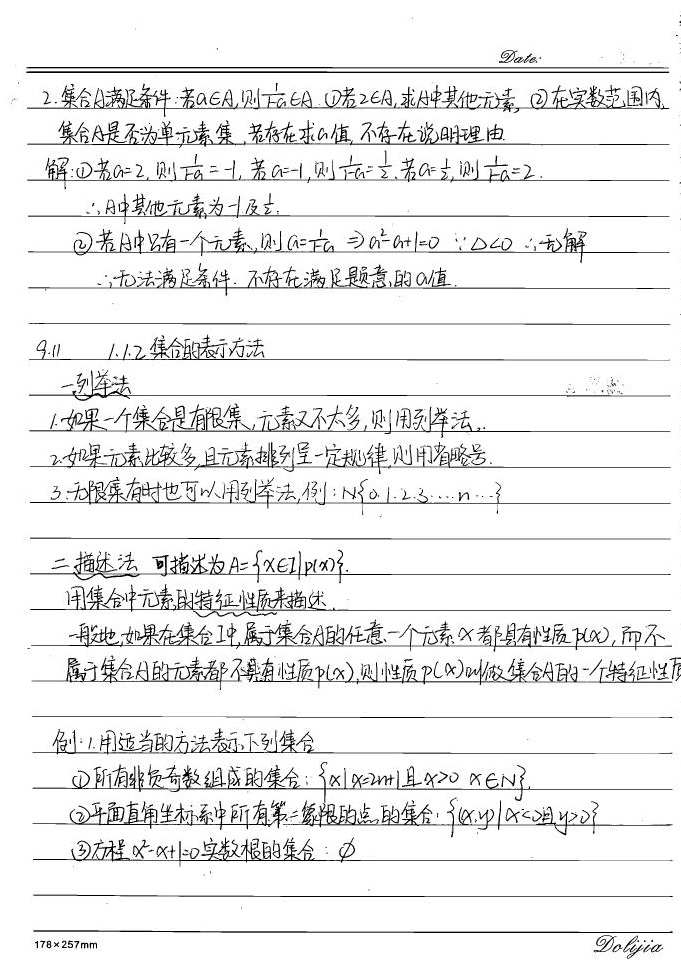 Date:
2.集合A满足条件:若a∈A,则1/(1-a)∈A.①若2∈A,求A中其他元素 ②在实数范围内,
集合A是否为单元素集,若存在求a值,不存在说明理由
解:①若a=2,则1/(1-a)=-1,若a=-1,则1/(1-a)=1/2.若a=1/2,则1/(1-a)=2.
∴A中其他元素为-1及1/2.
②若A中只有一个元素,则a=1/(1-a) ⇒a²-a+1=0 ∵Δ<0 ∴无解
∴无法满足条件.不存在满足题意的a值.
9.11 1.1.2集合的表示方法
一.列举法
1.如果一个集合是有限集,元素又不太多,则用列举法.
2.如果元素比较多,且元素排列呈一定规律,则用省略号.
3.无限集有时也可以用列举法,例:N{0.1.2.3.…n…}
二.描述法 可描述为A={x∈I|p(x)}.
用集合中元素的特征性质来描述.
一般地,如果在集合I中,属于集合A的任意一个元素x都具有性质p(x),而不
属于集合A的元素都不具有性质p(x),则性质p(x)叫做集合A的一个特征性质
例:1.用适当的方法表示下列集合
①所有非负奇数组成的集合:{x|x=2n+1且x>0 x∈N}.
②平面直角坐标系中所有第二象限的点的集合:{(x,y)|x<0且y>0}
③方程x²-x+1=0实数根的集合:∅
178×257mm
Dolijia